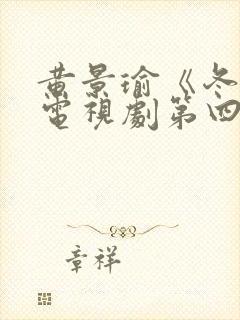 黄景瑜《冬
電視劇第四
章祥